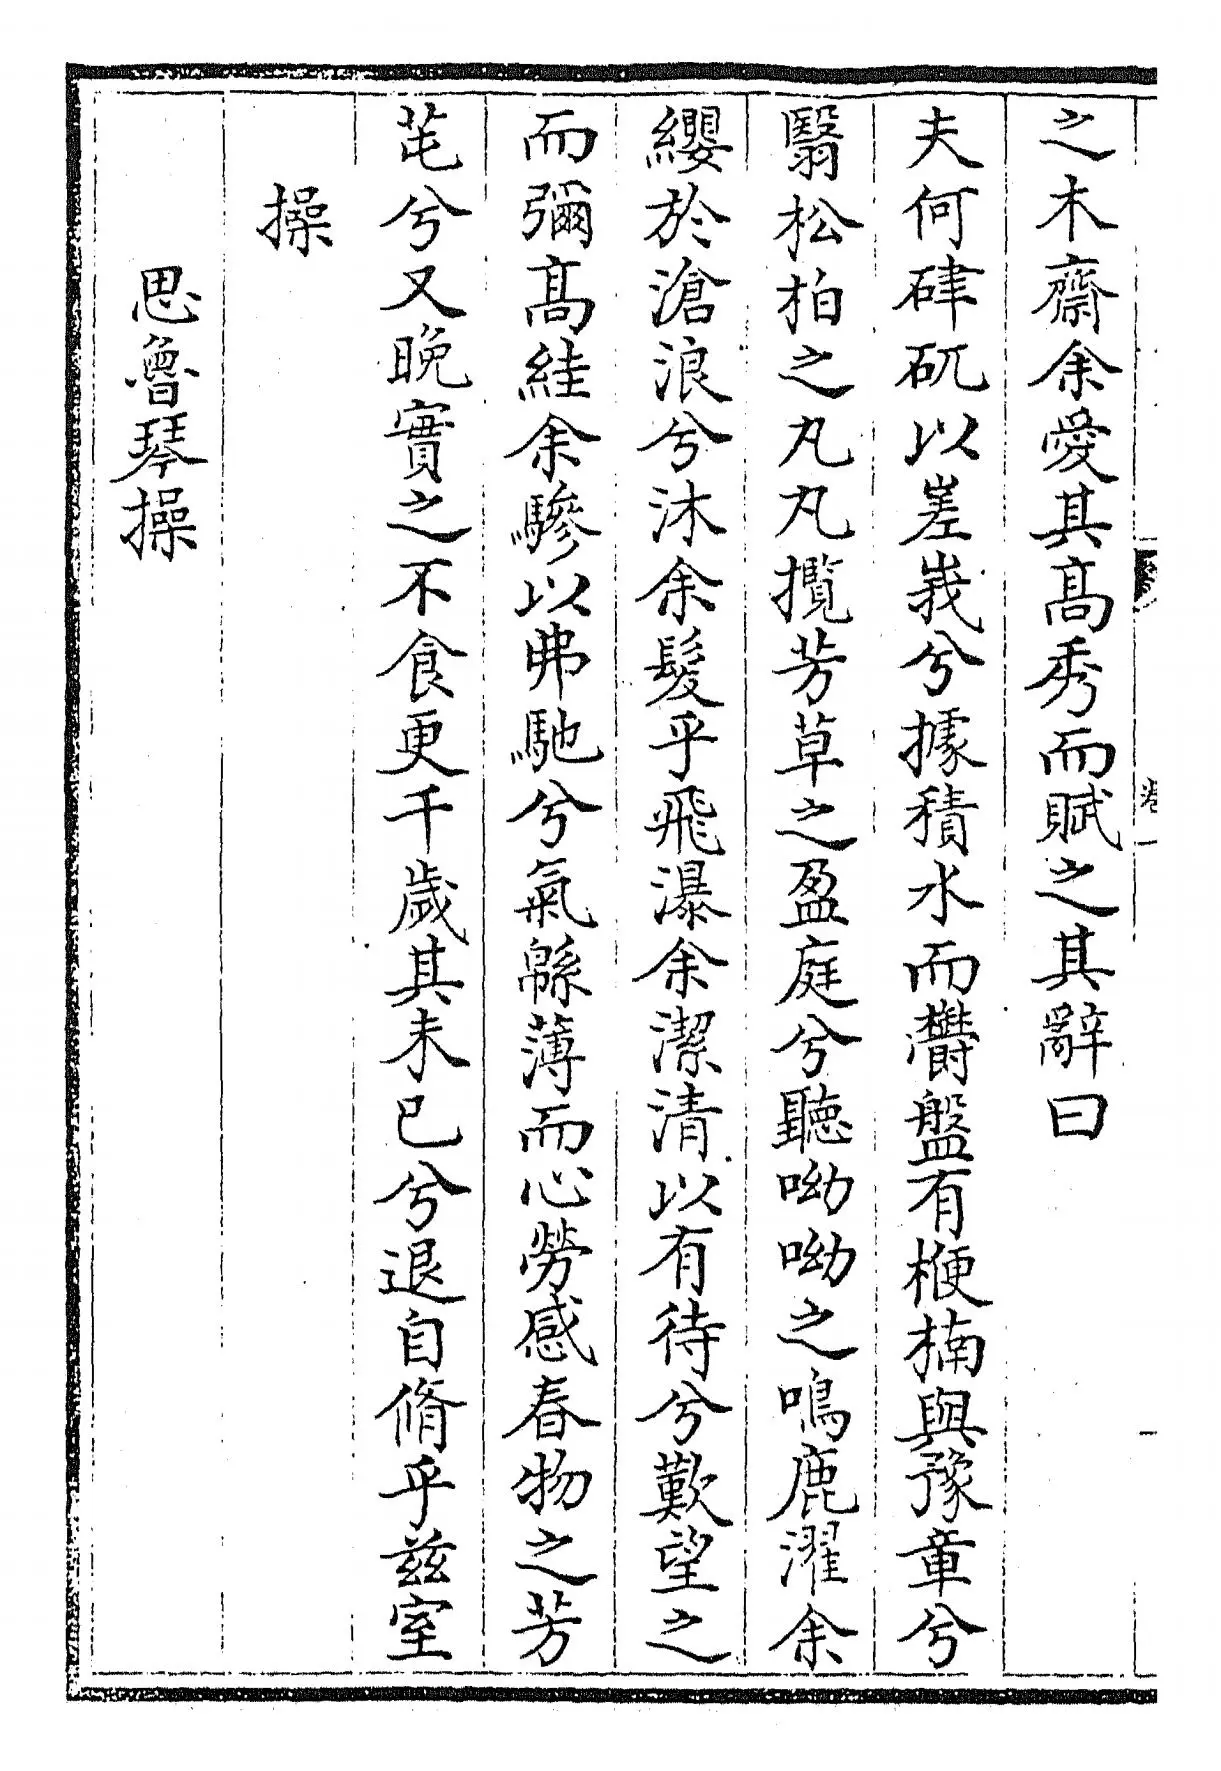 之木齋余愛其髙秀而賦之其辭曰
夫何硉矹以嵳峩兮據積水而欝盤有楩楠與豫章兮
翳松柏之丸丸攬芳草之盈庭兮聽呦呦之鳴鹿濯余
纓於滄浪兮沐余髮乎飛瀑余潔清以有待兮歎望之
而彌髙絓余驂以弗馳兮氣緜薄而心勞感春物之芳
芼兮又晚實之不食更千歲其未已兮退自脩乎兹室
操
思魯琴操
卷一